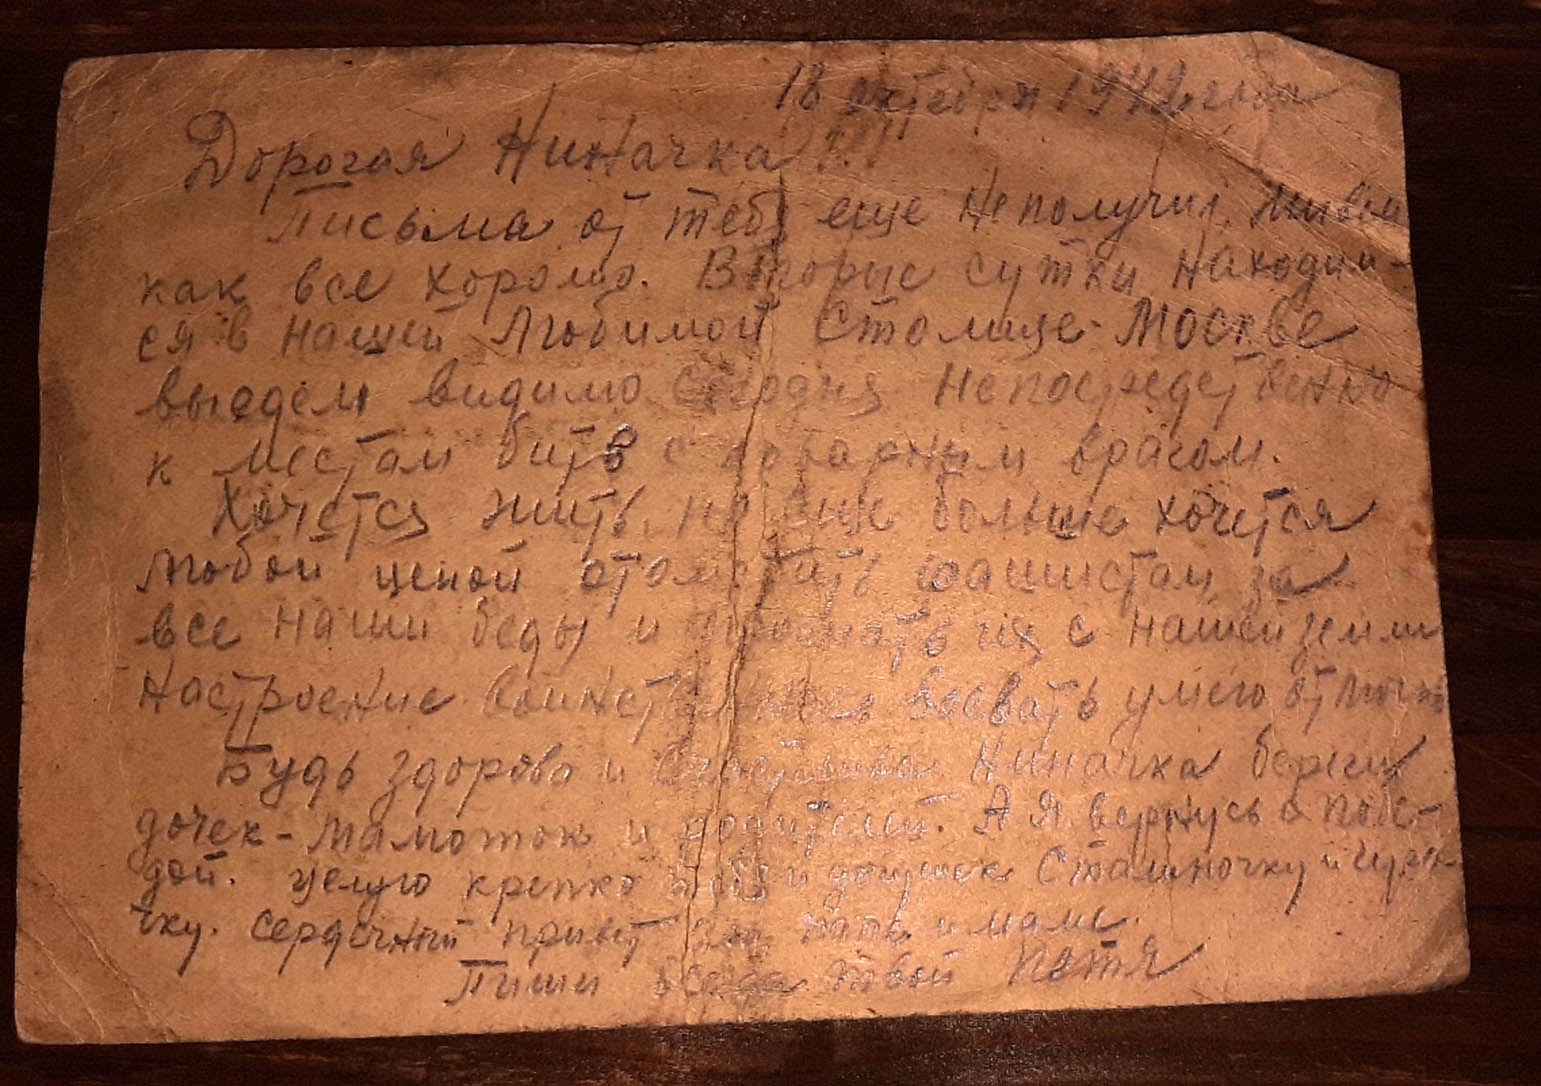 18 октября 1942 года
Дорогая Ниначка!!!
Письма от тебя еще не получил. Живем
как все хорошо. Вторые сутки находим-
ся в нашей Любимой Столице-Москве
выедем видимо сегодня непосредственно
к местам битв с коварным врагом.
Хочется жить, но еще больше хочется
любой ценой отомстить фашистам за
все наши беды и прогнать их с нашей земли
Настроение воинственное воевать умею
Будь здорова и Счастлива Ниначка береги
дочек-Мамоток и родителей. А я вернусь с побе-
дой. Целую крепко тебя и дочушек Сталиночку и
чку. Сердечный привет папе и маме.
Пиши всегда твой Петя